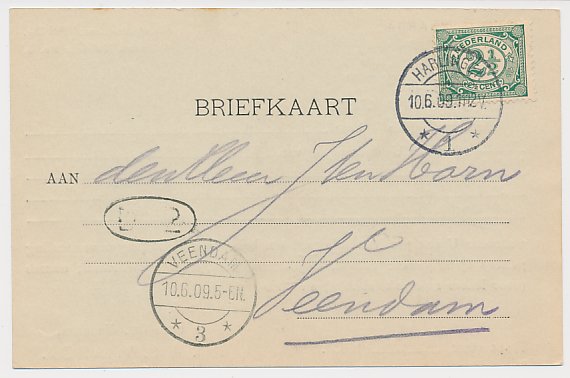 NEDERLAND
2½
2½ CENT
HARLINGEN
10.6.09.11-12V.
* 1 *
BRIEFKAART
AAN den Heer J ten Horn
2
VEENDAM
10.6.09.5-6N.
* 3 *
Veendam